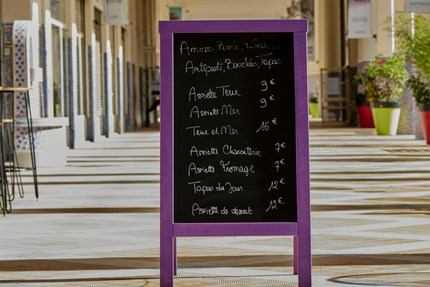 Antipasti, Bouchées, Tapas
Assiette Terre 9€
Assiette Mer 9€
Terre et Mer 16€
Assiette Charcuterie 7€
Assiette Fromage 7€
Tapas du Jour 12€
Assiette de dessert 12€